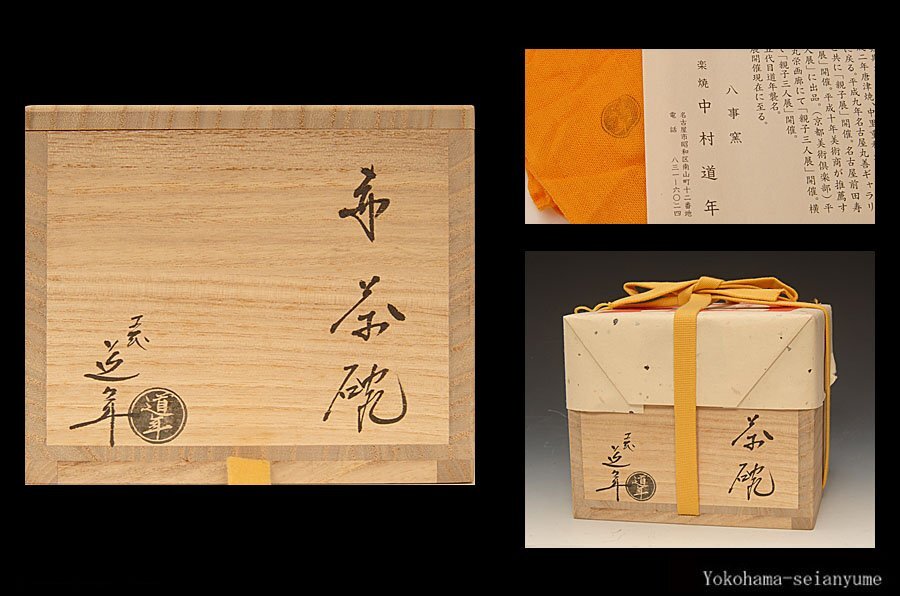 赤茶碗
五代
道年
道年
成二年唐津焼、中里重
に戻る。平成九年名古屋丸善ギャラリ
と共に「親子展」開催。名古屋前田寿
展」開催。平成十年美術商が推薦す
人展」に出品(京都美術倶楽部)平
丸栄画廊にて「親子三人展」開催。横
て「親子三人展」開催。
五代目道年襲名。
展開催現在に至る。
八事窯
楽焼 中村道年
名古屋市昭和区南山町十二番地
電話 八三一-六〇二四
茶碗
五代
道年
道年
Yokohama-seianyume